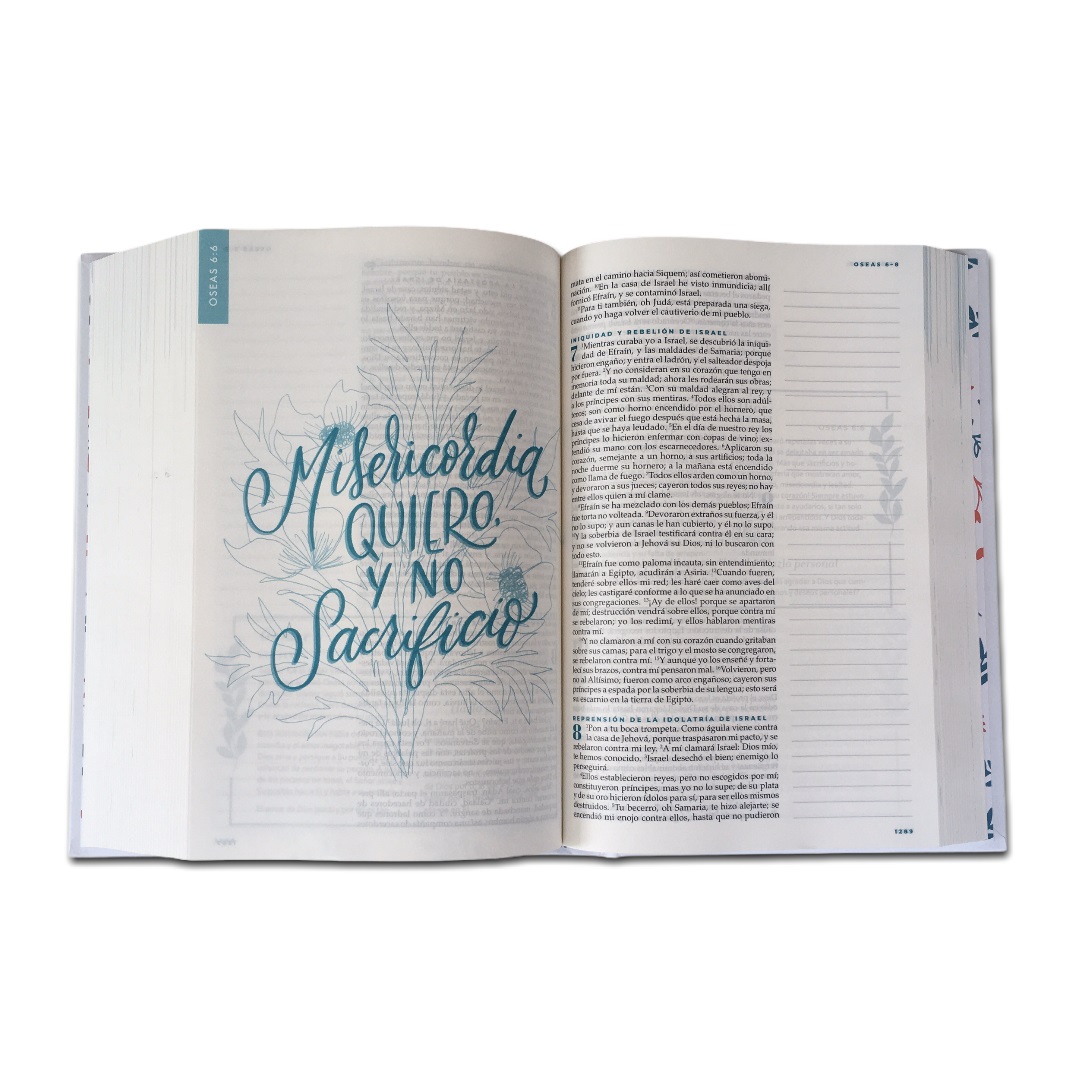 OSEAS 6:6
Misericordia
QUIERO,
Y NO
Sacrificio
OSEAS 6–8
mata en el camino hacia Siquem; así cometieron abomi-
nación. 10En la casa de Israel he visto inmundicia; allí
fornicó Efraín, y se contaminó Israel.
11Para ti también, oh Judá, está preparada una siega,
cuando yo haga volver el cautiverio de mi pueblo.
INIQUIDAD Y REBELIÓN DE ISRAEL
7 1Mientras curaba yo a Israel, se descubrió la iniqui-
dad de Efraín, y las maldades de Samaria; porque
hicieron engaño; y entra el ladrón, y el salteador despoja
por fuera. 2Y no consideran en su corazón que tengo en
memoria toda su maldad; ahora les rodearán sus obras;
delante de mí están. 3Con su maldad alegran al rey, y
a los príncipes con sus mentiras. 4Todos ellos son adúl-
teros; son como horno encendido por el hornero, que
cesa de avivar el fuego después que está hecha la masa,
hasta que se haya leudado. 5En el día de nuestro rey los
príncipes lo hicieron enfermar con copas de vino; ex-
tendió su mano con los escarnecedores. 6Aplicaron su
corazón, semejante a un horno, a sus artificios; toda la
noche duerme su hornero; a la mañana está encendido
como llama de fuego. 7Todos ellos arden como un horno,
y devoraron a sus jueces; cayeron todos sus reyes; no hay
entre ellos quien a mí clame.
8Efraín se ha mezclado con los demás pueblos; Efraín
fue torta no volteada. 9Devoraron extraños su fuerza, y él
no lo supo; y aun canas le han cubierto, y él no lo supo.
10Y la soberbia de Israel testificará contra él en su cara;
y no se volvieron a Jehová su Dios, ni lo buscaron con
todo esto.
11Efraín fue como paloma incauta, sin entendimiento;
llamarán a Egipto, acudirán a Asiria. 12Cuando fueren,
tenderé sobre ellos mi red; les haré caer como aves del
cielo; les castigaré conforme a lo que se ha anunciado en
sus congregaciones. 13¡Ay de ellos! porque se apartaron
de mí; destrucción vendrá sobre ellos, porque contra mí
se rebelaron; yo los redimí, y ellos hablaron mentiras
contra mí.
14Y no clamaron a mí con su corazón cuando gritaban
sobre sus camas; para el trigo y el mosto se congregaron,
se rebelaron contra mí. 15Y aunque yo los enseñé y forta-
lecí sus brazos, contra mí pensaron mal. 16Volvieron, pero
no al Altísimo; fueron como arco engañoso; cayeron sus
príncipes a espada por la soberbia de su lengua; esto será
su escarnio en la tierra de Egipto.
REPRENSIÓN DE LA IDOLATRÍA DE ISRAEL
8 1Pon a tu boca trompeta. Como águila viene contra
la casa de Jehová, porque traspasaron mi pacto, y se
rebelaron contra mi ley. 2A mí clamará Israel: Dios mío,
te hemos conocido. 3Israel desechó el bien; enemigo lo
perseguirá.
4Ellos establecieron reyes, pero no escogidos por mí;
constituyeron príncipes, mas yo no lo supe; de su plata
y de su oro hicieron ídolos para sí, para ser ellos mismos
destruidos. 5Tu becerro, oh Samaria, te hizo alejarte; se
encendió mi enojo contra ellos, hasta que no pudieron
1289